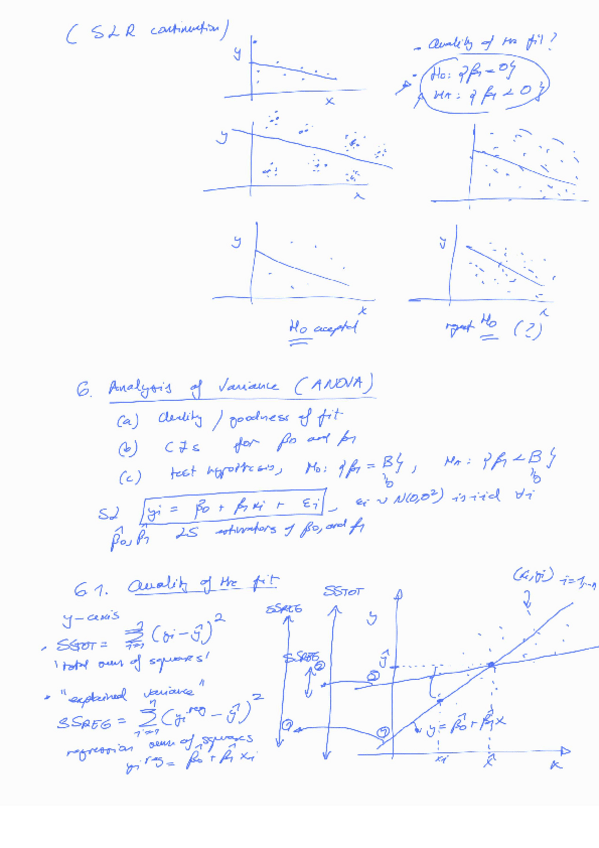 (SLR continuation)
y
x
- Quality of the fit?
H0: {β1 = 0}
HA: {β1 < 0}
y
x
y
x
H0 accepted
y
x
reject H0 (?)
6. Analysis of Variance (ANOVA)
(a) Quality / goodness of fit
(b) CIs for β0 and β1
(c) test hypothesis, H0: {β1 = B}, HA: {β1 < B}
yi = β0 + β1 xi + εi, εi ~ N(0,σ²) is iid ∀i
β̂0, β̂1 LS estimators of β0, and β1
6 1. Quality of the fit
y-axis
SSTOT = Σ (yi - ŷ)²
i=1
n
'total sum of squares'
"explained variance"
SSREG = Σ (yi^reg - ŷ)²
i=1
n
regression sum of squares
yi^reg = β̂0 + β̂1 xi
SSREG
SSTOT
SSREG
y
ŷ
(xi, yi) i=1,..n
y = β̂0 + β̂1 x
xi
x̂
x